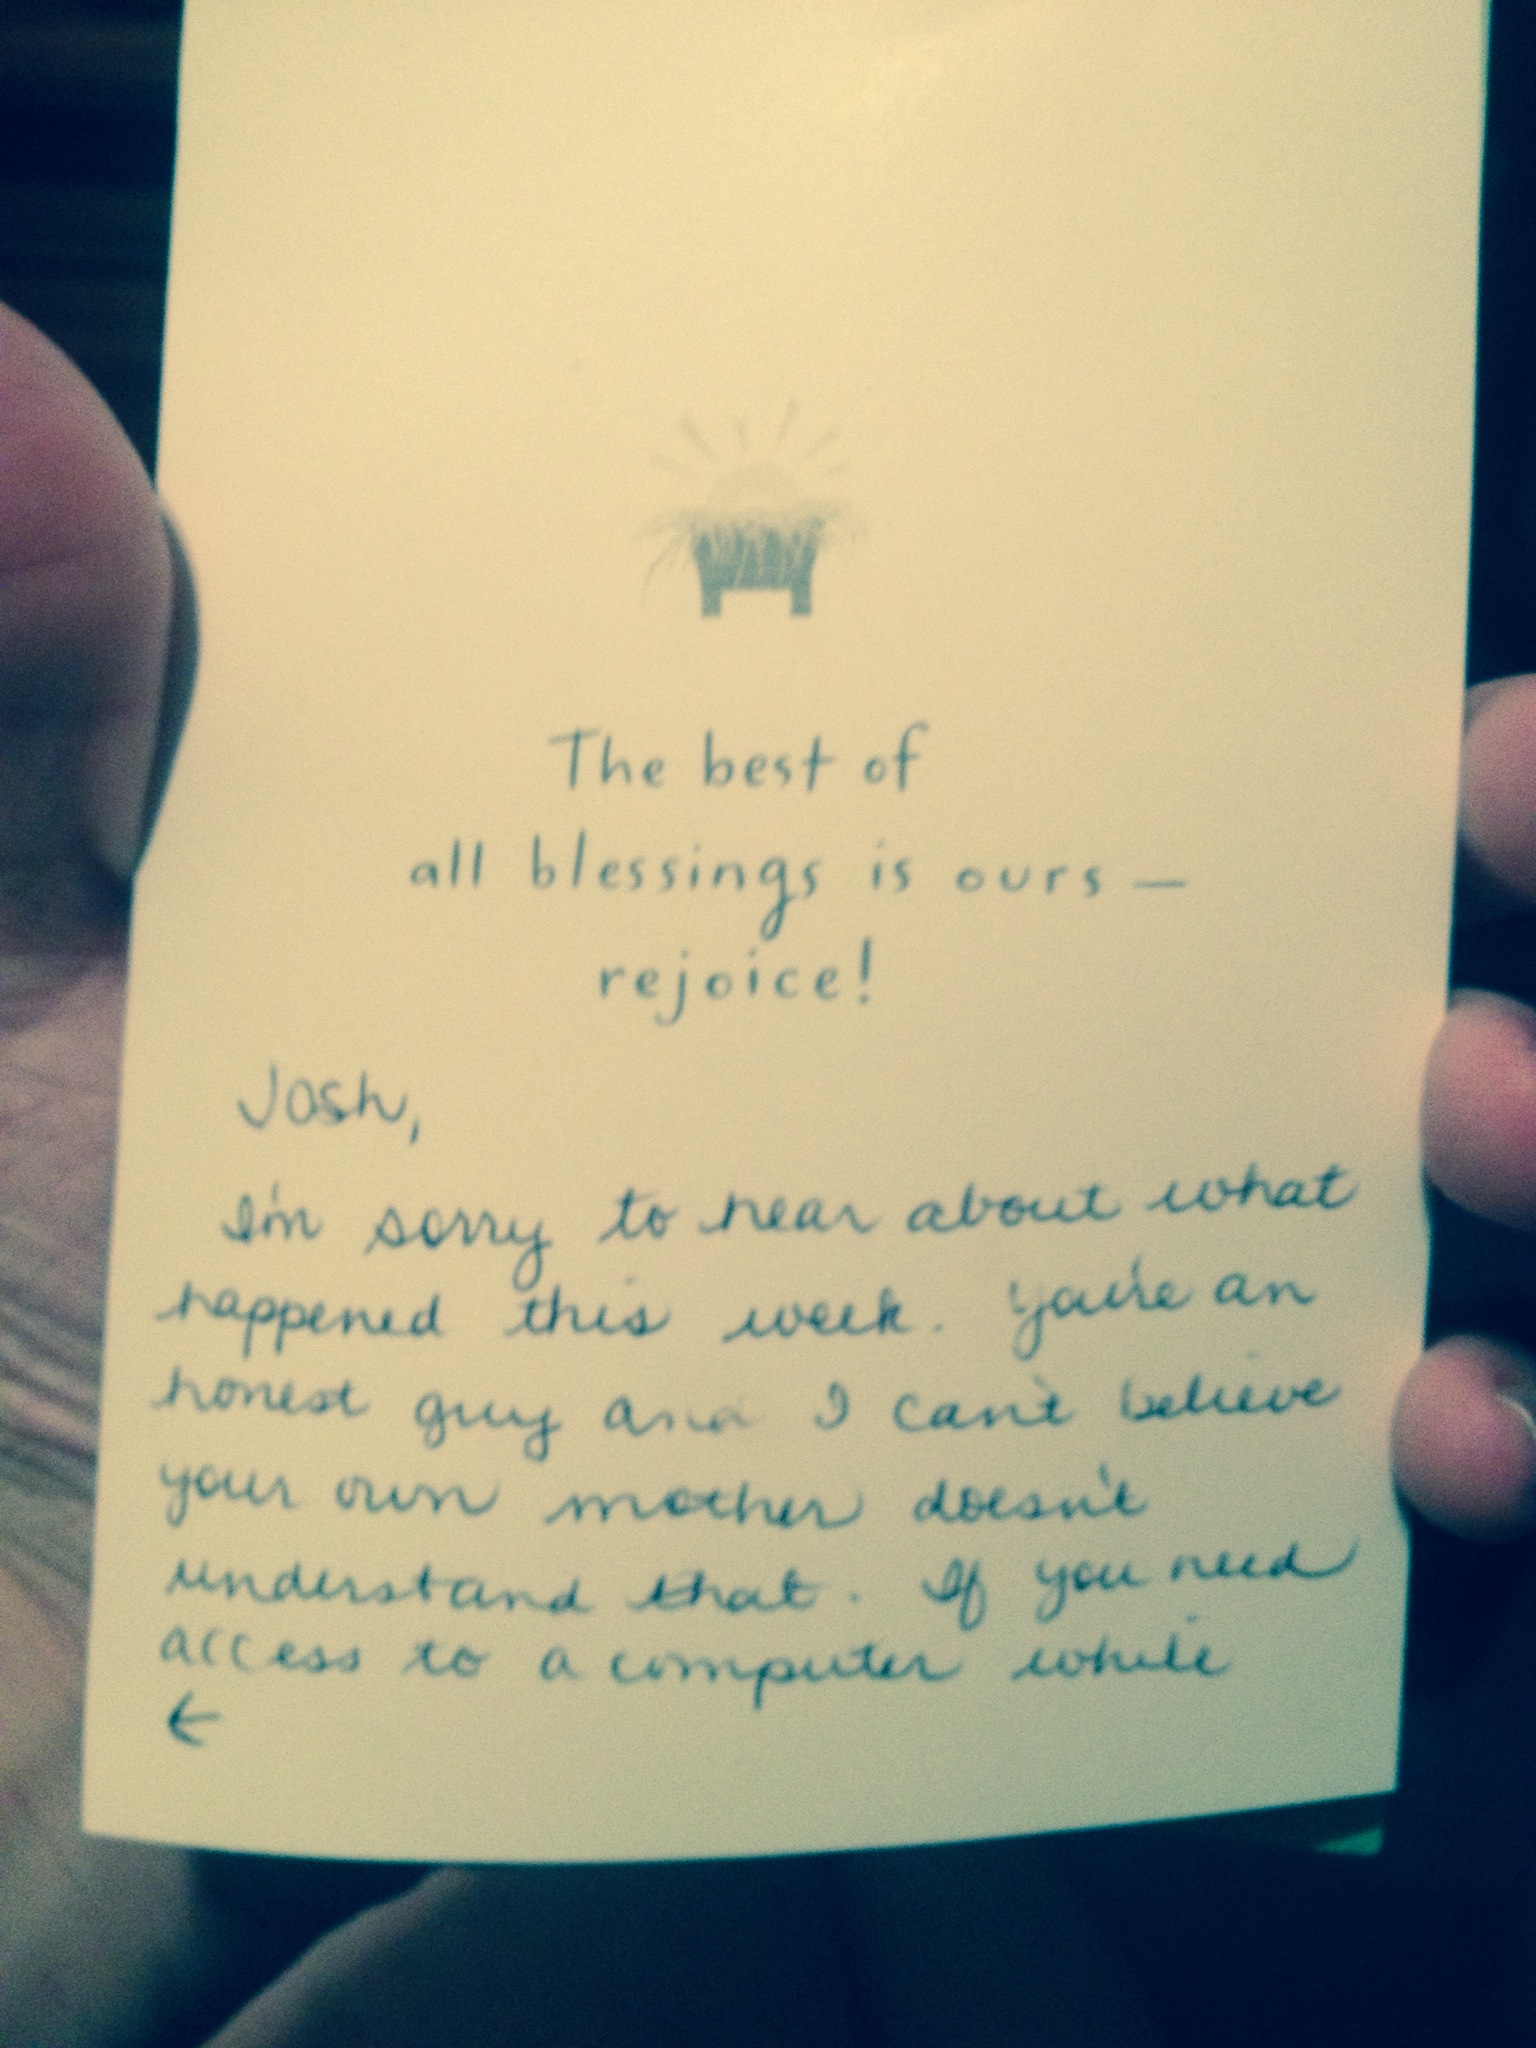 The best of
all blessings is ours —
rejoice!
Josh,
I'm sorry to hear about what
happened this week. You're an
honest guy and I can't believe
your own mother doesn't
understand that. If you need
access to a computer while
←